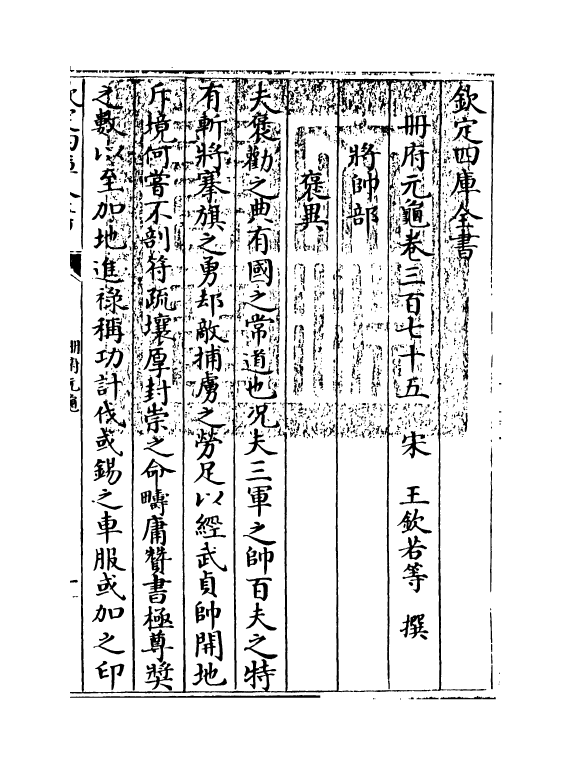 欽定四庫全書
冊府元龜卷三百七十五 宋 王欽若等 撰
將帥部
褒異
夫褒勸之典有國之常道也况夫三軍之帥百夫之特
有斬將搴旗之勇却敵捕虜之勞足以經武貞師開地
斥境何嘗不剖符疏壤厚封崇之命疇庸贊書極尊奬
之數以至加地進祿稱功計伐或錫之車服或加之印
冊府元龜
一